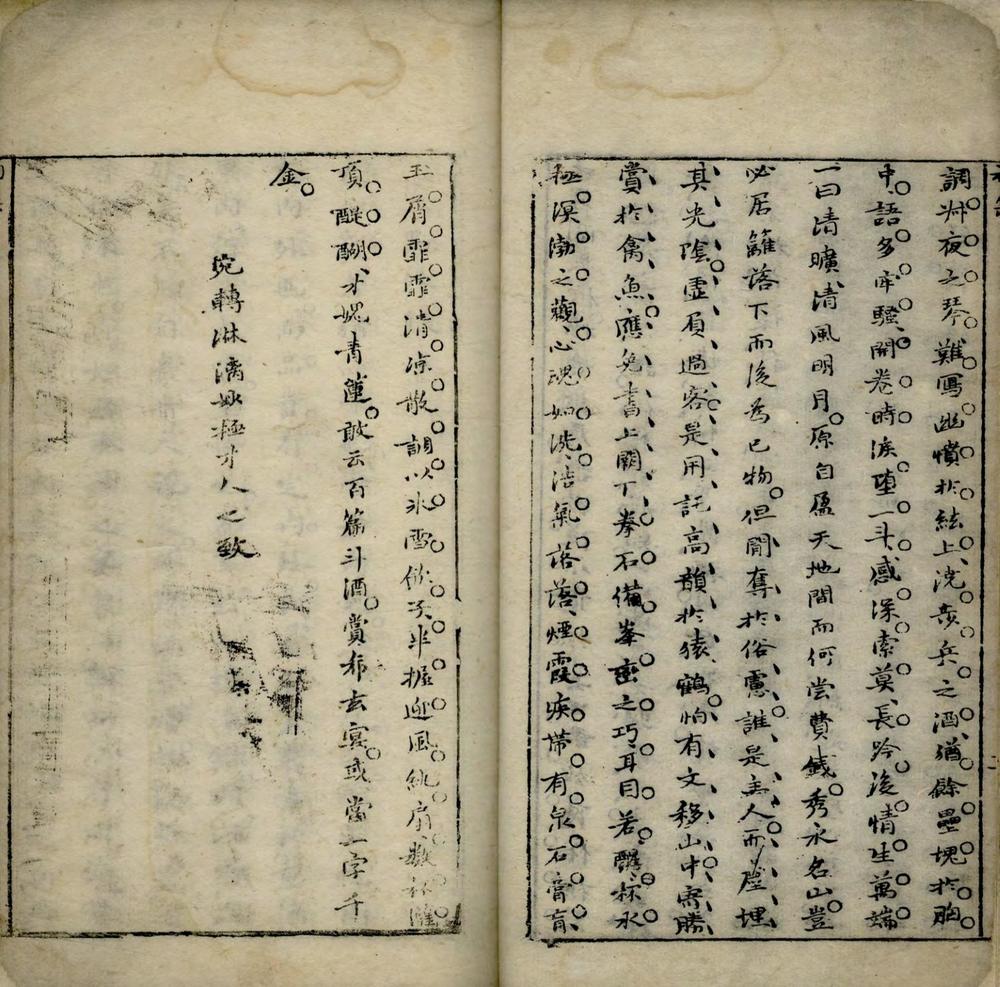 調煞夜之琴難寫幽憤於絃上澆哀兵之酒猶餘壘塊於胸
中語多牢騷開卷時淚墮一斗感深索莫長吟後情生萬端
一曰清曠清風明月原自盈天地間而何嘗費錢秀水名山豈
必居籬落下而後為已物但鬪奪於俗慮誰是主人而塵埋
其光陰虛負過客是用託高韻於猿鶴怕有文移山中寄勝
賞於禽魚應免書上闕下拳石備峯巒之巧耳目若醒杯水
極溟渤之觀心魂如洗浩氣落落煙霞疾帶有泉石膏肓
玉屑霏霏清凉散調以氷雪欲半握迎風紈扇數杯灌
頂醍醐才媿青蓮敢云百篇斗酒賞希玄宴或當一字千
金
宛轉淋漓妙極才人之致